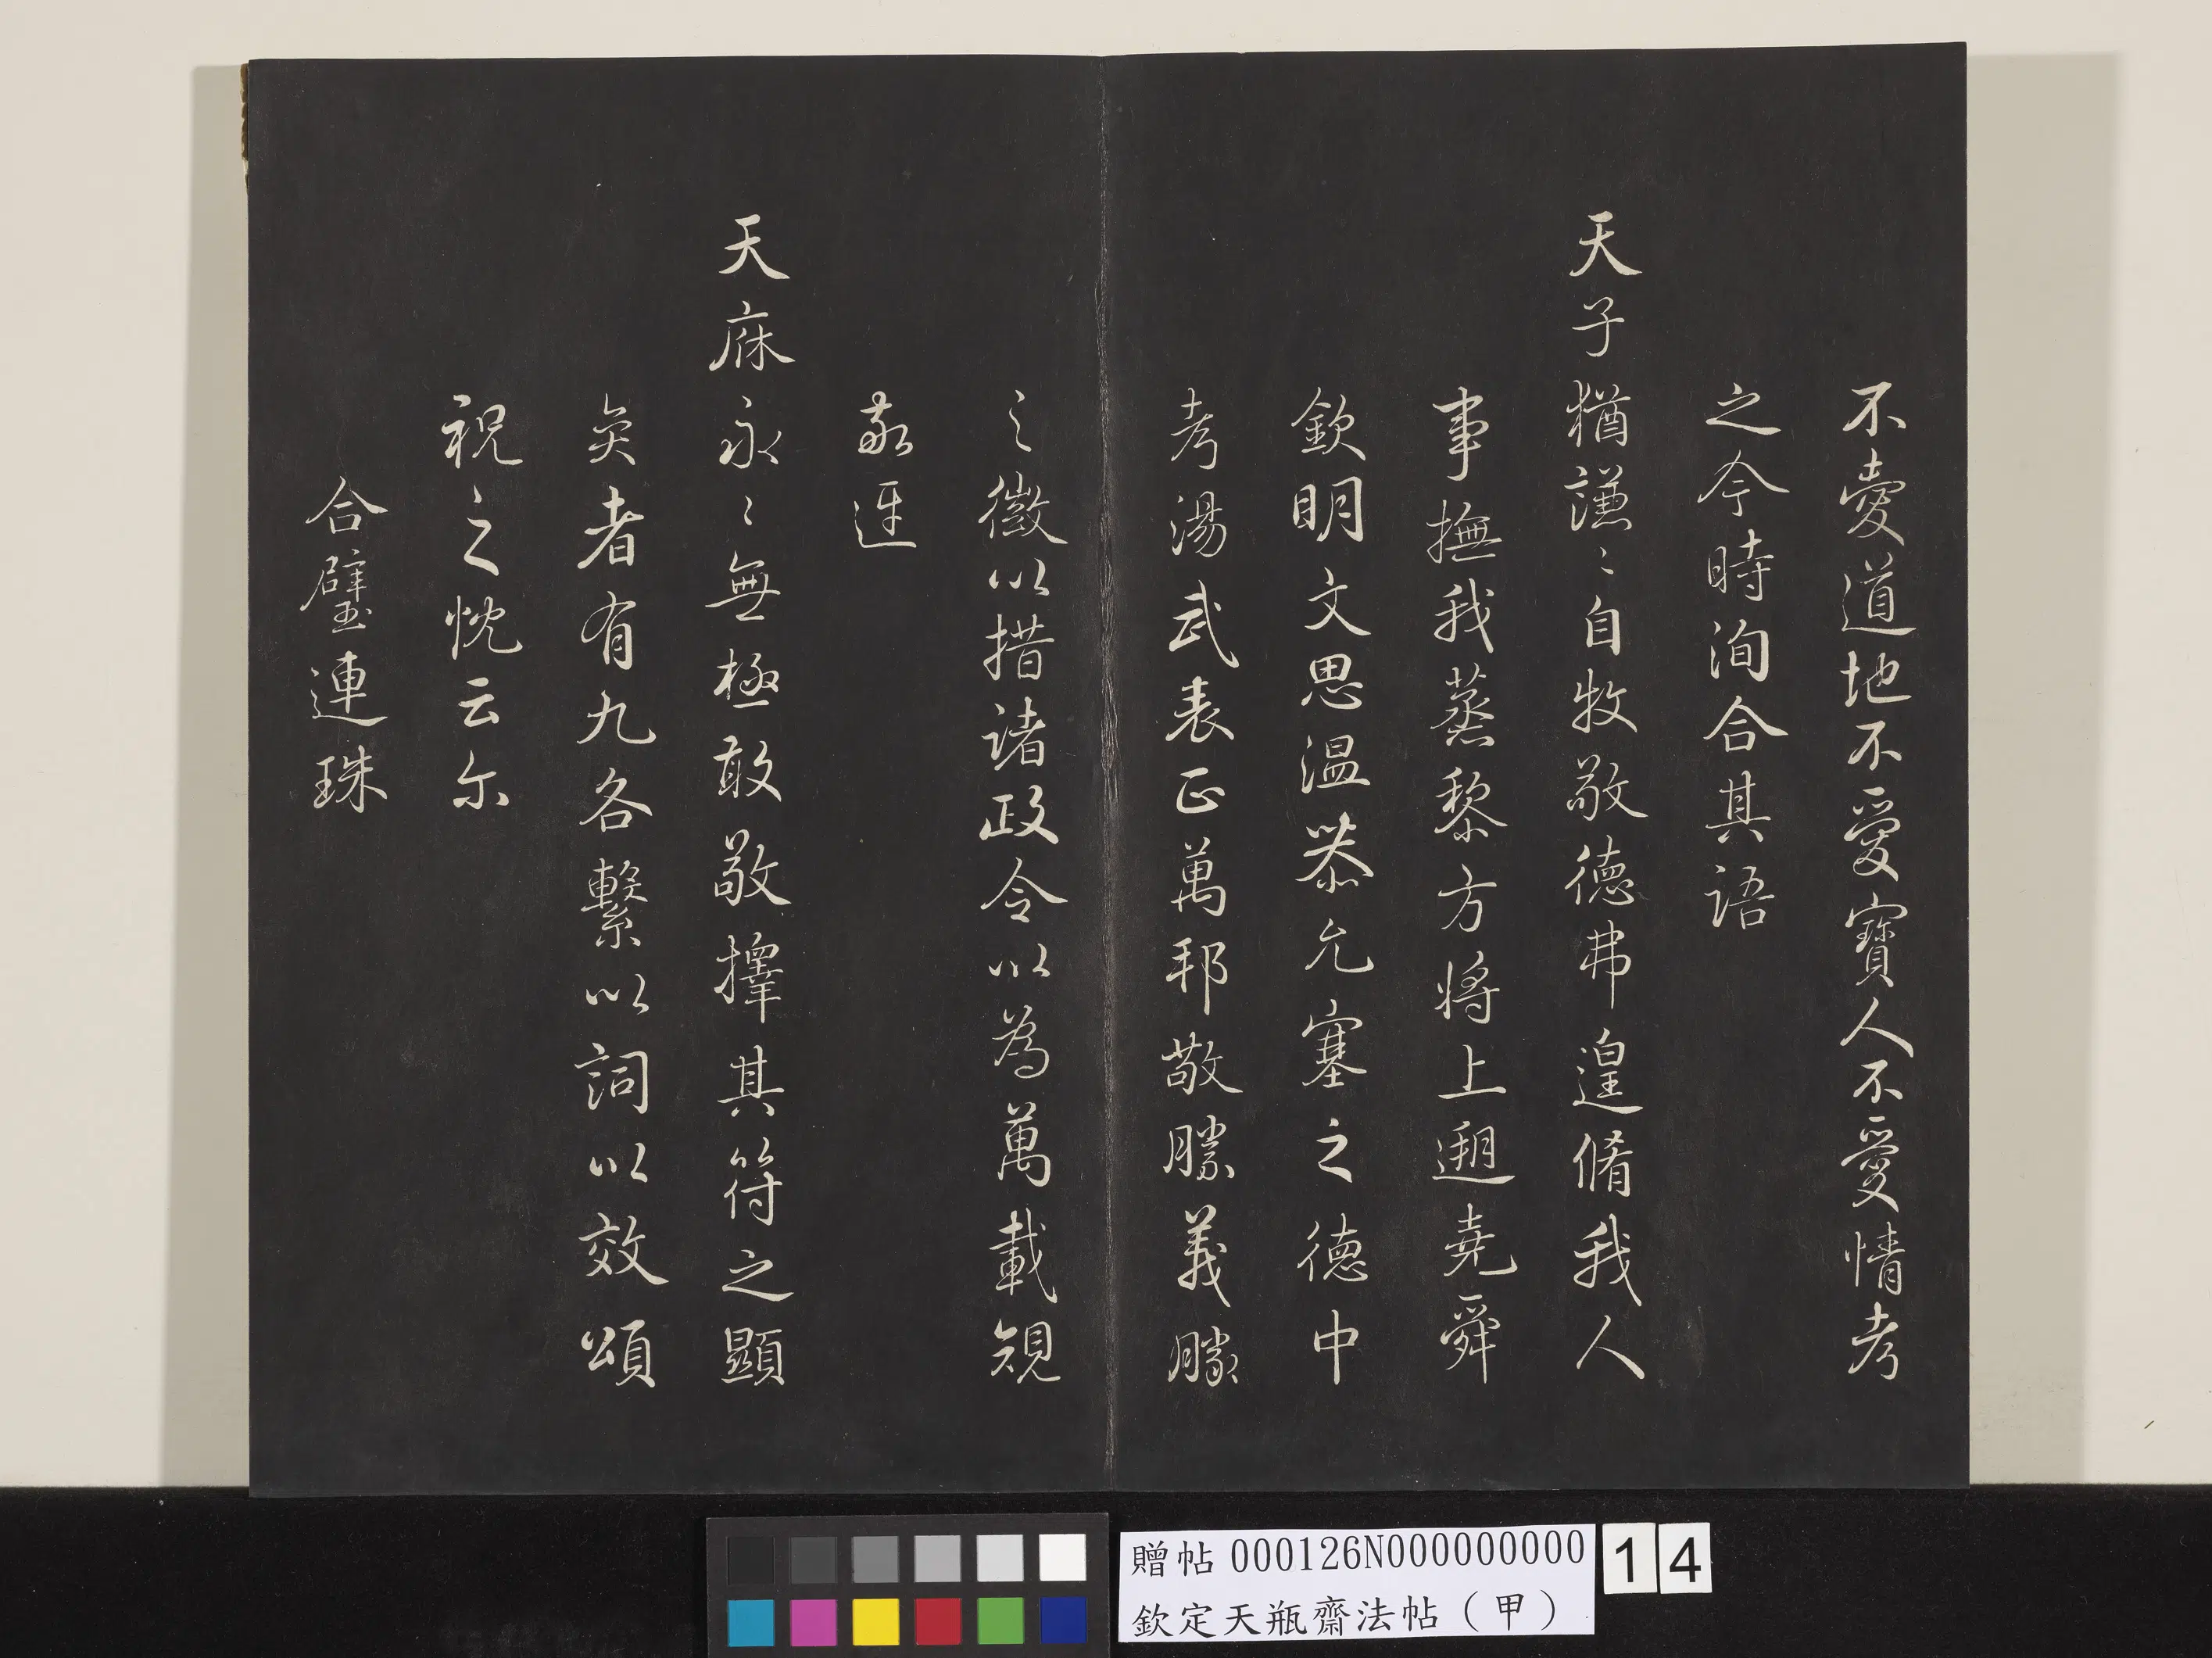 不愛道地不愛寶人不愛情考
之今時洵合其語
天子猶謙〻自牧敬德弗遑脩我人
事撫我蒸黎方將上遡堯舜
欽明文思溫恭允塞之德中
考湯武表正萬邦敬勝義勝
之徵以措諸政令以為萬載規
敬迓
天庥永〻無極敢敬擇其符之顯
者有九各繫以詞以效頌
祝之忱云尔
合璧連珠
贈帖 000126N000000000
欽定天瓶齋法帖（甲）
14